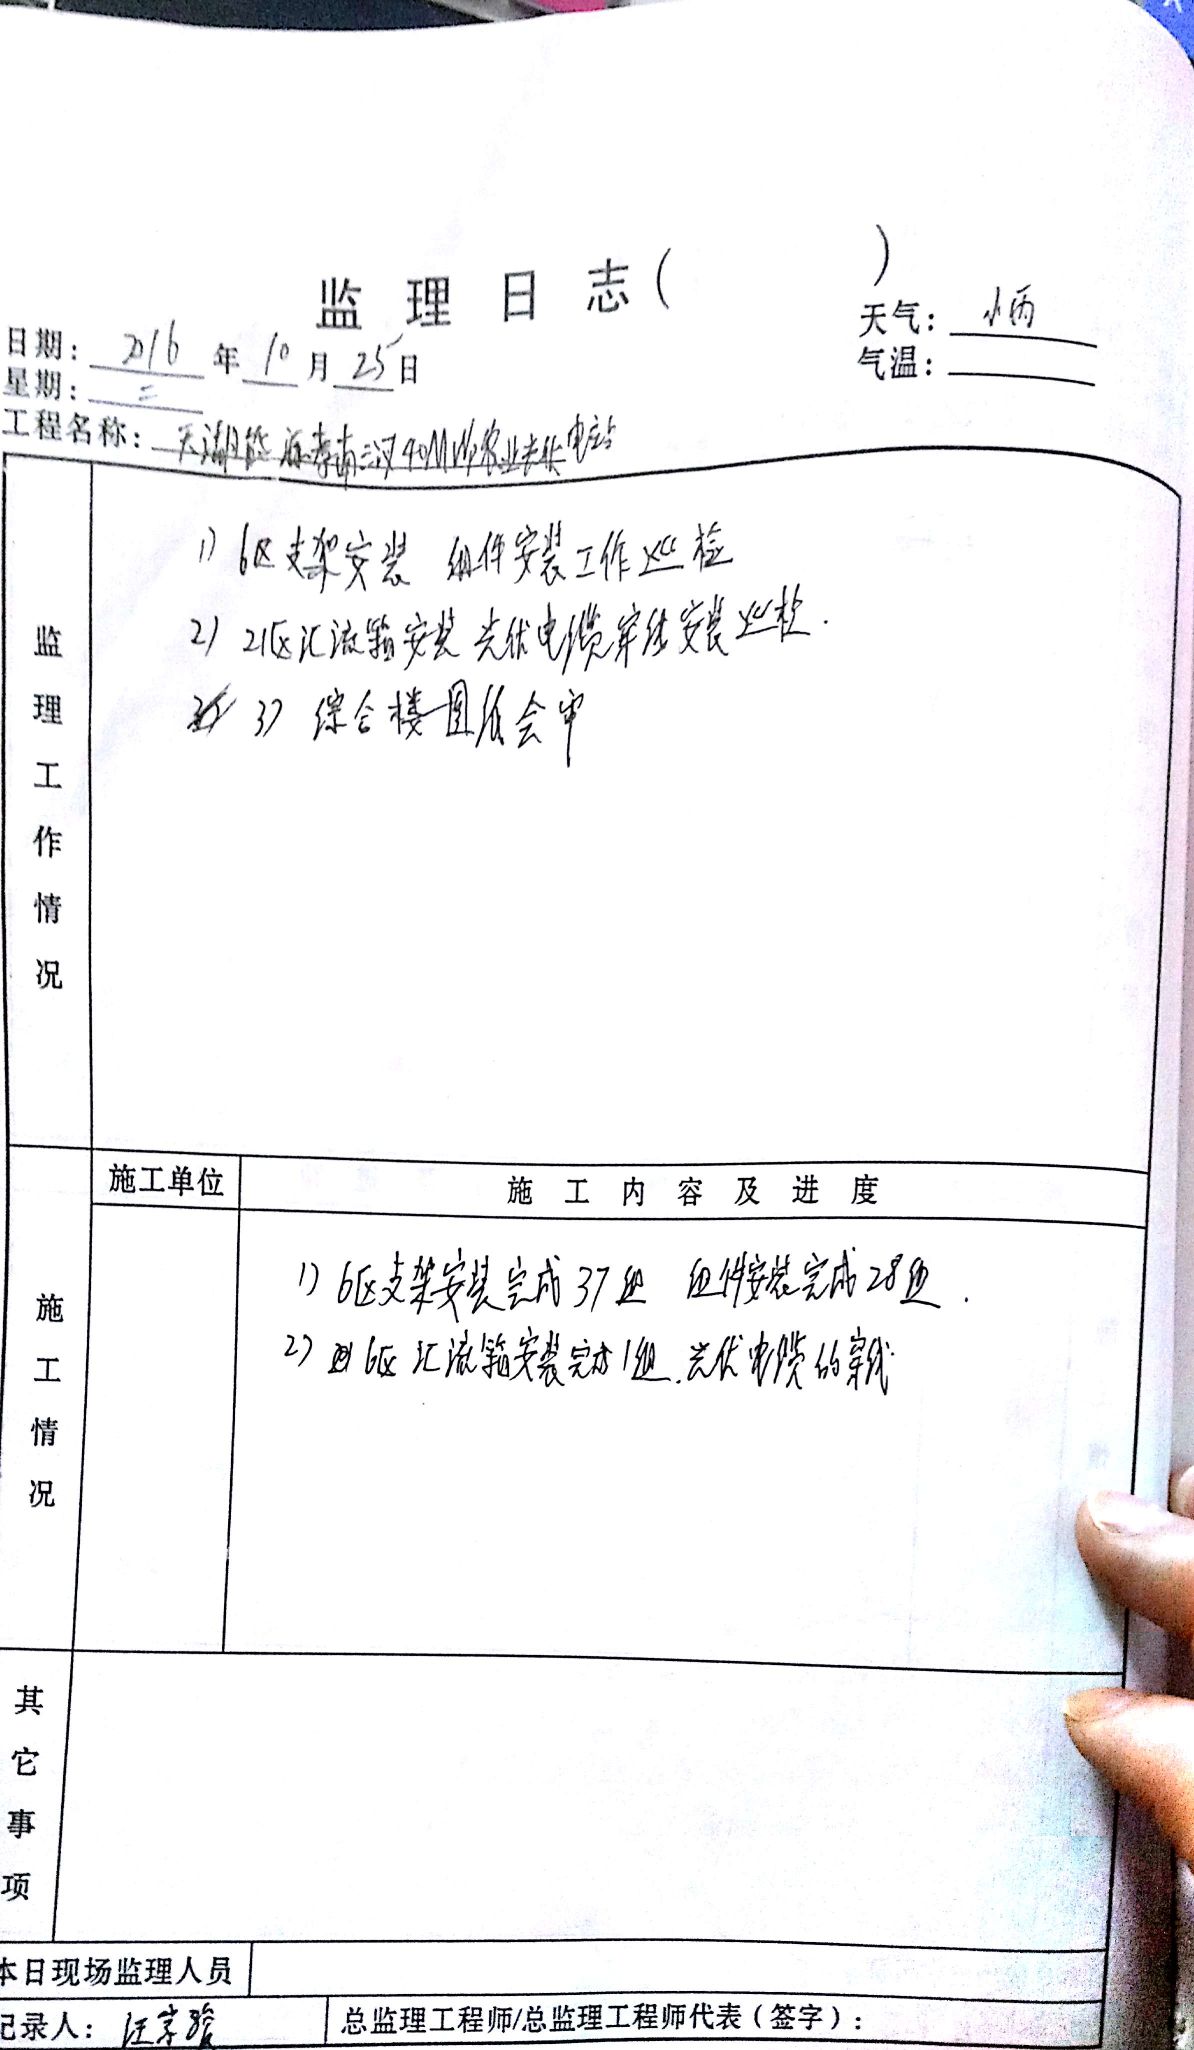 监理日志( )
天气：小雨
日期：2016年10月25日
气温：
星期：二
工程名称：天湖能源孝南三汊40MW农业光伏电站
监理工作情况
1) 6区支架安装 组件安装工作巡检
2) 21区汇流箱安装 光伏电缆穿线安装巡检.
3) 综合楼图纸会审
施工情况
施工单位
施工内容及进度
1) 6区支架安装完成37组 组件安装完成28组.
2) 6区汇流箱安装完成1组.光伏电缆的穿线
其它事项
本日现场监理人员
记录人：汪
总监理工程师/总监理工程师代表（签字）：